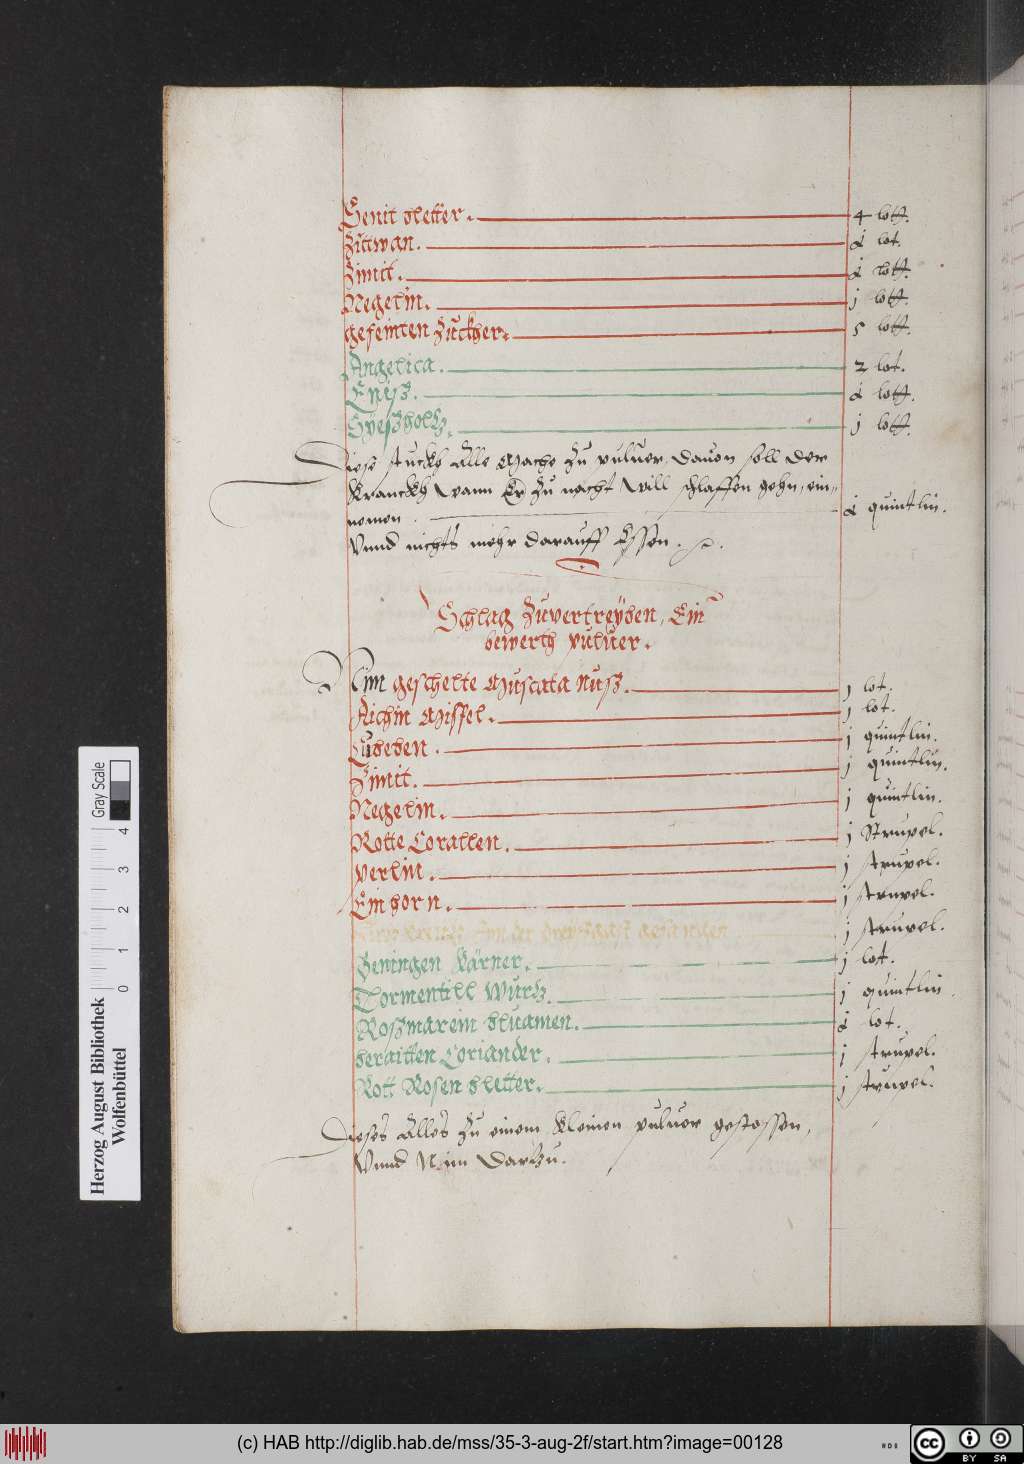 Senit bletter. 4 lott.
Zittwan. ɉ lot.
Zimit. ɉ lott.
Negelin. j lott.
gefeinten Zuckher. 5 lott.
Angelica. 2 lot.
Eniß. ɉ lott.
Syeßholtz. j lott.
Diese stuckh Alle Mache Zu puluer, dauon soll der
Kranckh Wann Er Zu nacht Will schlaffen gehn, ein-
nemen. ɉ quintlin.
Vnnd nichts mehr darauff Essen.
Schlag Zuvertreyben, Ein
bewerth puluer.
Nim geschelte Muscata Nuß. j lot.
Aichin Mispel. j lot.
Cubeben. j quintlin.
Zimit. j quintlin.
Negelin. j quintlin.
Rotte Corallen. j Strupel.
Perlin. j strupel.
Einhorn. j strupel.
j strupel.
Beningen Kärner. j lot.
Tormentill Wurtz. j quintlin
Roßmarein bluamen. ɉ lot.
beraitten Coriander. j strupel.
Rott Rosen bletter. j strupel.
Dieses Alles Zu einem Kleinen puluer gestossen,
Vnnd Nim Dartzu.
Herzog August Bibliothek
Wolfenbüttel
0 1 2 3 4
Gray Scale
(c) HAB http://diglib.hab.de/mss/35-3-aug-2f/start.htm?image=00128
cc BY SA